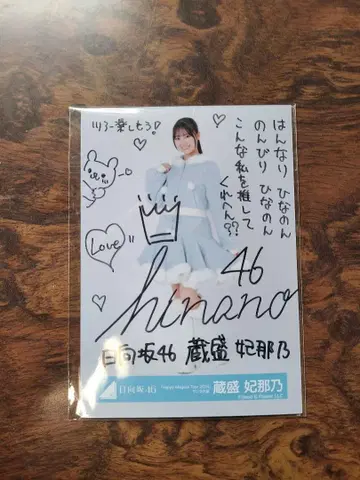 はんなり ひなのん
のんびり ひなのん
こんな私を推して
くれへん??
ツアー楽しもう!
Love
46
hinano
日向坂46 蔵盛 妃那乃
日向坂46
Happy Magical Tour 2024
蔵盛 妃那乃